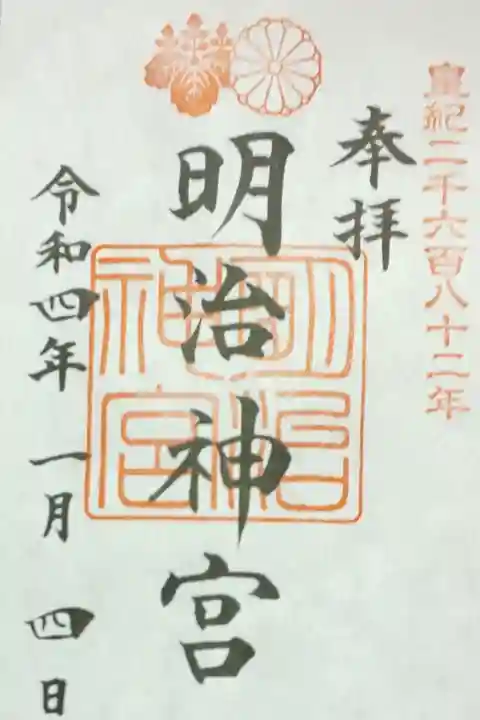 皇紀二千六百八十二年
奉拝
明治神宮
令和四年一月四日
明治神宮